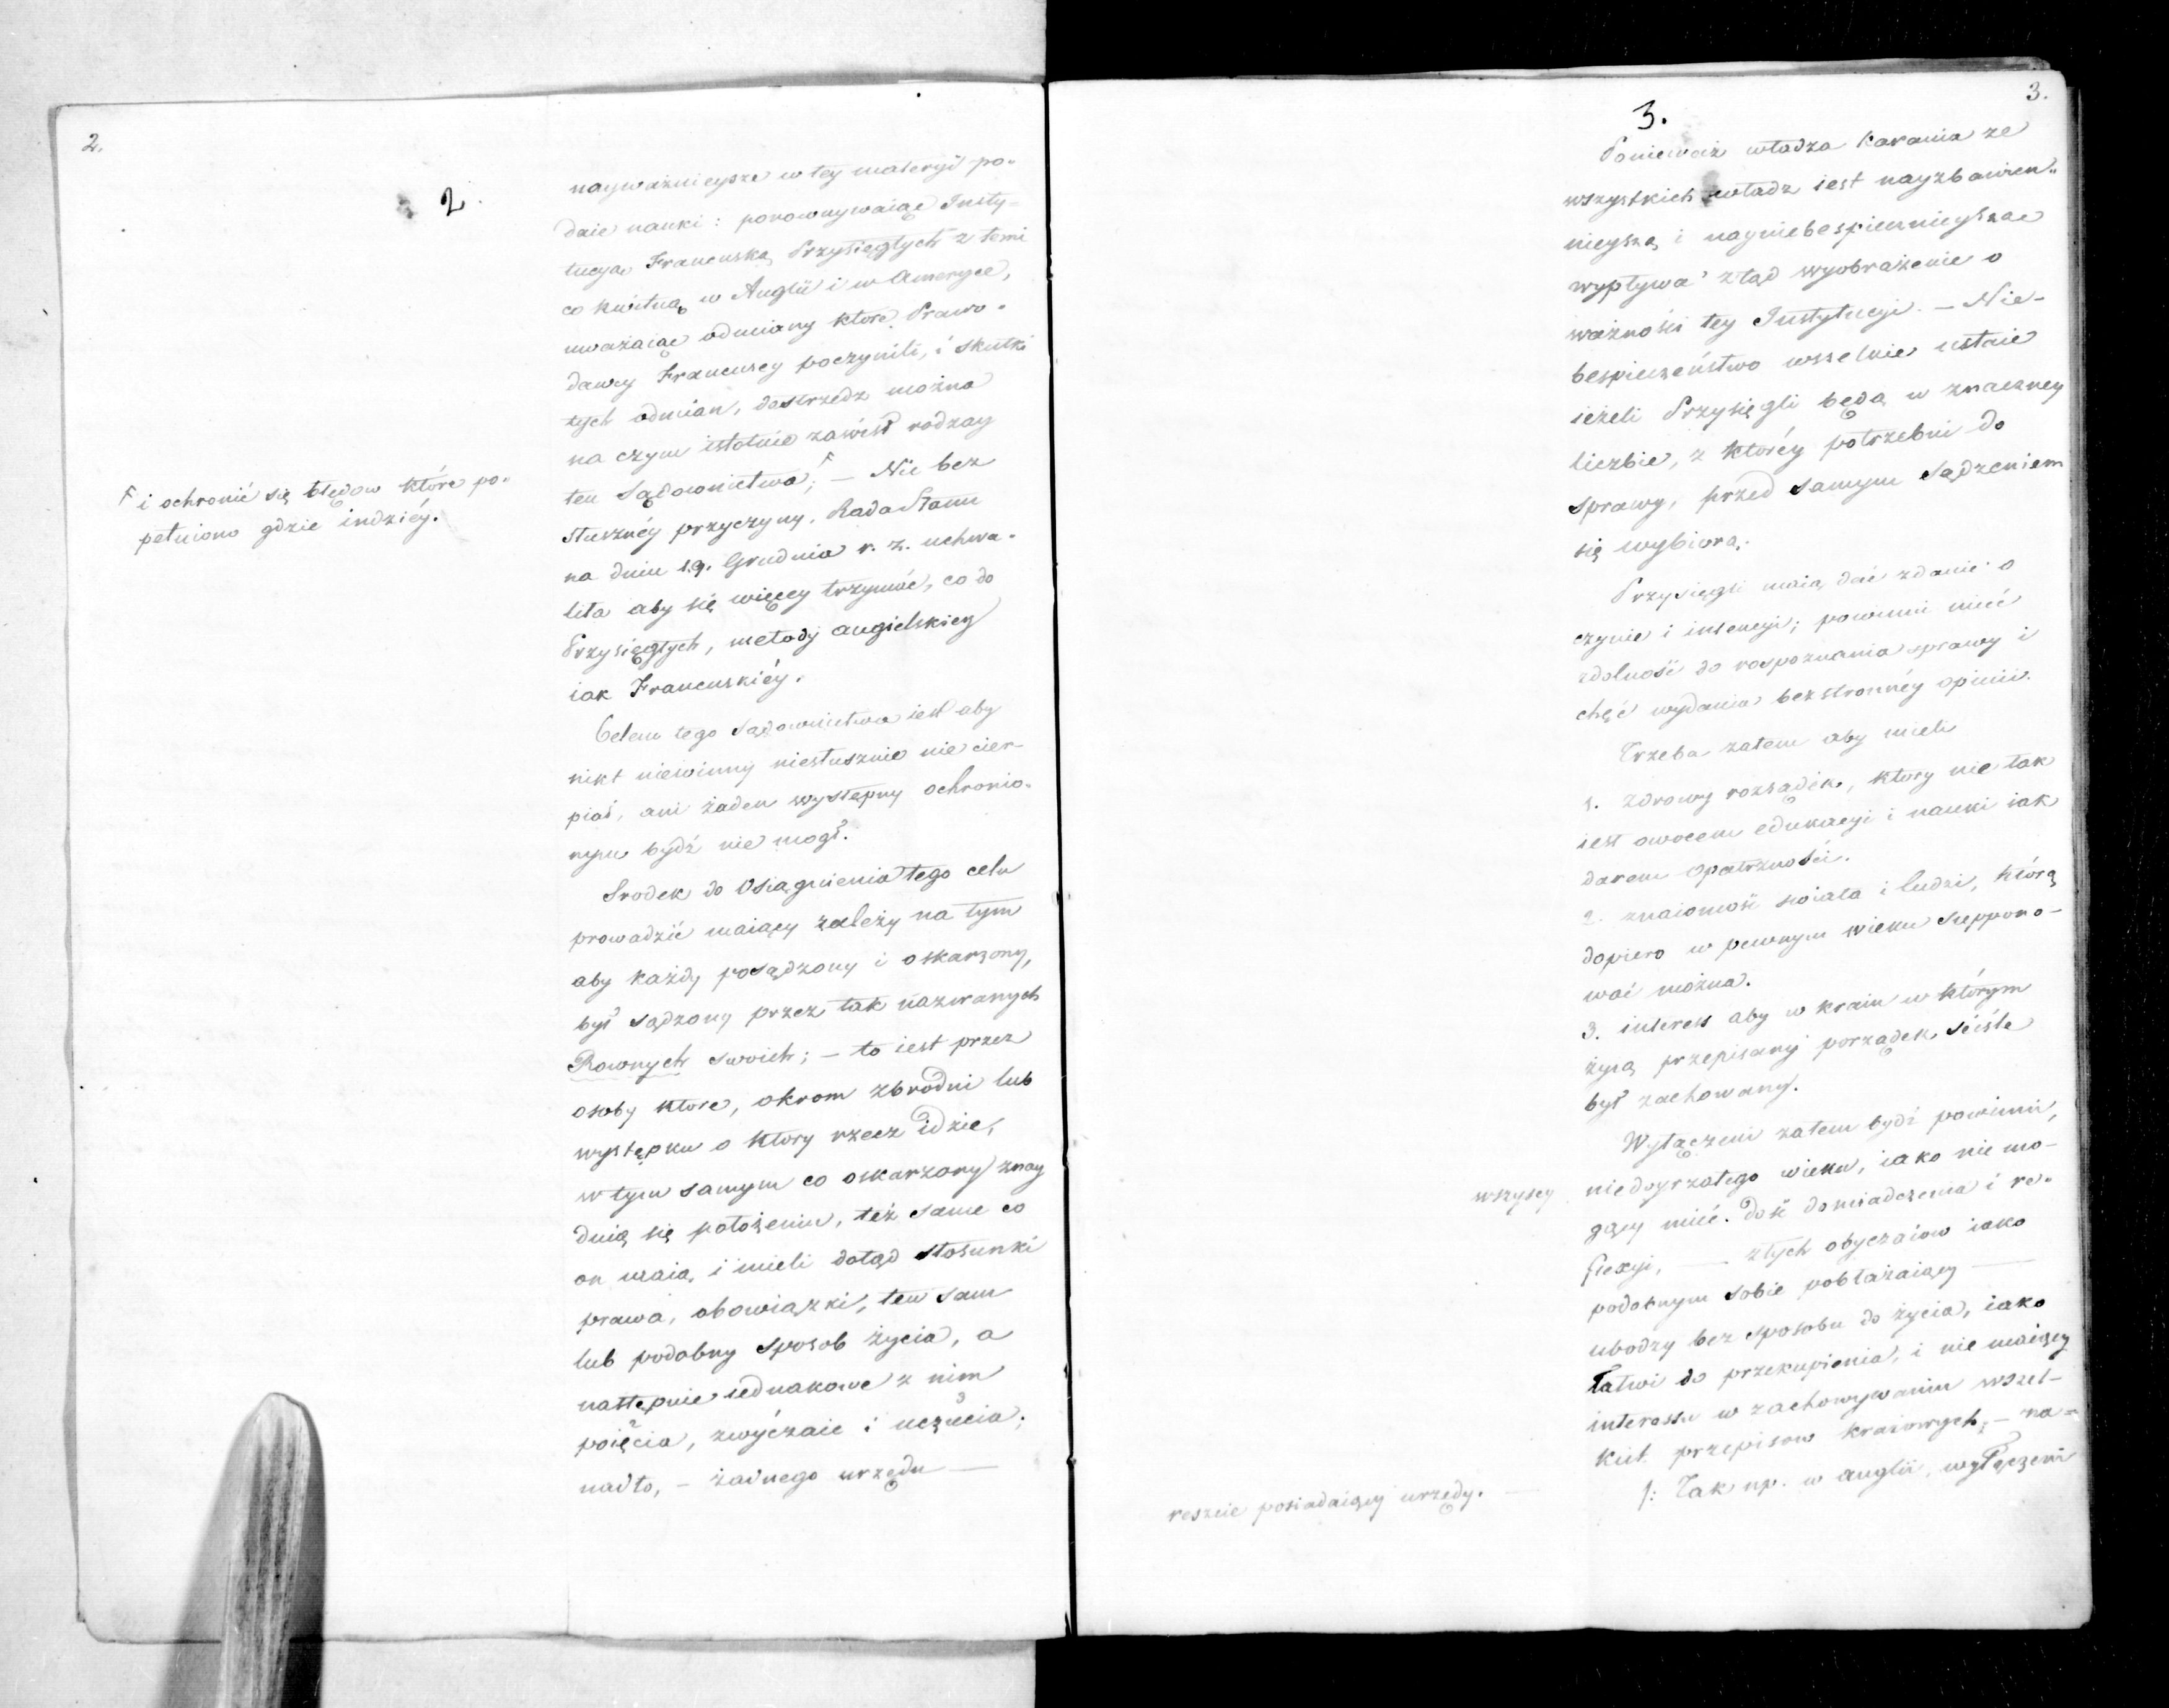 2.
2.
nayważnieysze w tey materyi po„
daie nauki: porownywaiąc Insty-
tucyą Francuską Przysięgłych z temi
co kwitną w Anglii i w Ameryce,
uważaiąc odmiany ktore Prawo-
dawcy Francuscy poczynili, i skutki
tych odmian, dostrzedz można
na czym istotnie zawisł rodzay
ten Sądownictwa; F — Nie bez
słusznéy przyczyny, Rada Stanu
na dniu 19. Grudnia r. z. uchwa-
liła aby się więcey trzymać, co do
Przysięgłych, metody angielskiey
iak Francuskiéy.
F i ochronić się błędow które po„
pełniono gdzie indziéy.
Celem tego Sądownictwa iest aby
nikt niewinny niesłusznie nie cier-
piał, ani żaden występny ochronio-
nym bydź nie mogł.
Srodek do Osiągnienia tego celu
prowadzić maiący zależy na tym
aby każdy posądzony i oskarzony,
był sądzony przez tak nazwanych
Rownych swoich; — to iest przez
osoby ktore, okrom zbrodni lub
występku o ktory rzecz idzie,
w tym samym co oskarzony znay
duią się położeniu, też same co
on maią i mieli dotąd stosunki
prawa, obowiązki, ten sam
lub podobny sposob życia, a
następnie iednakowe z nim
poięcia, zwyczaie i uczucia;
nadto, — żadnego urzędu —
3.
3.
Ponieważ władza karania ze
wszystkich władz iest nayzbawien„
nieyszą i nayniebespiecznieyszą
wypływa ztąd wyobrażenie o
ważności tey Instytucyi. — Nie-
bespieczeństwo wszelkie ustaie
ieżeli Przysięgli będą w znaczney
liczbie, z któréy potrzebni do
sprawy, przed samym Sądzeniem
się wybiorą.
Przysięgli maią dać zdanie o
czynie i intencyi; powinni mieć
zdolność do rospoznania sprawy i
chęć wydania bezstronnéy opinii.
Trzeba zatem aby mieli
1. zdrowy rozsądek, ktory nie tak
iest owocem edukacyi i nauki iak
darem Opatrzności.
2. znaiomość swiata i ludzi, którą
dopiero w pewnym wieku suppono-
wać można.
3. interess aby w kraiu w którym
żyią przepisany porządek ściśle
był zachowany.
Wyłączeni zatem bydź powinni,
wszyscy niedoyrzałego wieku, iako nie mo-
gący mieć dość doswiadczenia i re-
flexyi, — złych obyczaiow iako
podobnym sobie pobłażaiący —
ubodzy bez sposobu do życia, iako
łatwi do przekupienia, i nie maiący
interessu w zachowywaniu wszel-
kich przepisow kraiowych, — na=
reszcie posiadaiący urzędy. —
/: Tak np. w anglii, wyłączeni